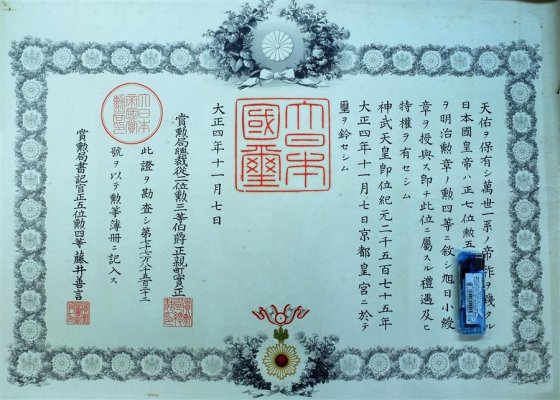 天佑ヲ保有シ萬世一系ノ帝祚ヲ踐タル
日本國皇帝ハ正七位勲五
ヲ明治勲章ノ勲四等ニ敘シ旭日小綬
章ヲ授與ス即チ此位ニ屬スル禮遇及ヒ
特權ヲ有セシム
神武天皇即位紀元二千五百七十五年
大正四年十一月七日京都皇宮ニ於テ
璽ヲ鈐セシム
大日本
國璽
大正四年十一月七日
賞勲局總裁從二位勲三等伯爵正親町實正
此證ヲ勘査シ第七十七万八千五百二十二
號ヲ以テ勲等簿冊ニ記入ス
賞勲局書記官正五位勲四等藤井善言
大日本
帝國賞
勲局印